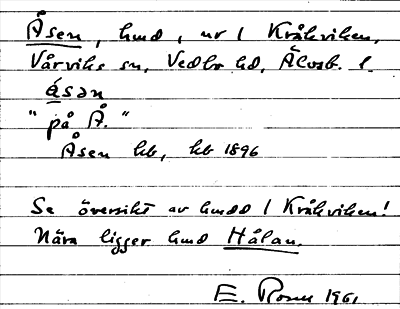 Åsen, hmd, nr 1 Kråkviken,
Vårviks sn, Vedbo hd, Älvsb. l.
åsən
"på Å."
Åsen hb, kb 1896
Se översikt av hmdd 1 Kråkviken!
Nära ligger hmd Hålan.
E. 1961